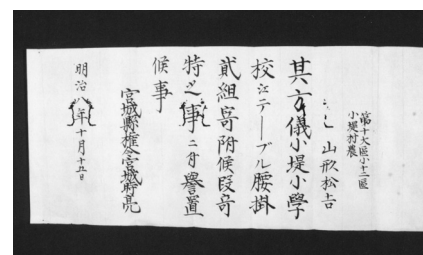 第十大區小十二區
小堤村農
山形松吉
其方儀小堤小學
校江テーブル腰掛
貳組寄附候段奇
特之事ニ付譽置
候事
宮城縣權令宮城時亮
明治八年十月十五日